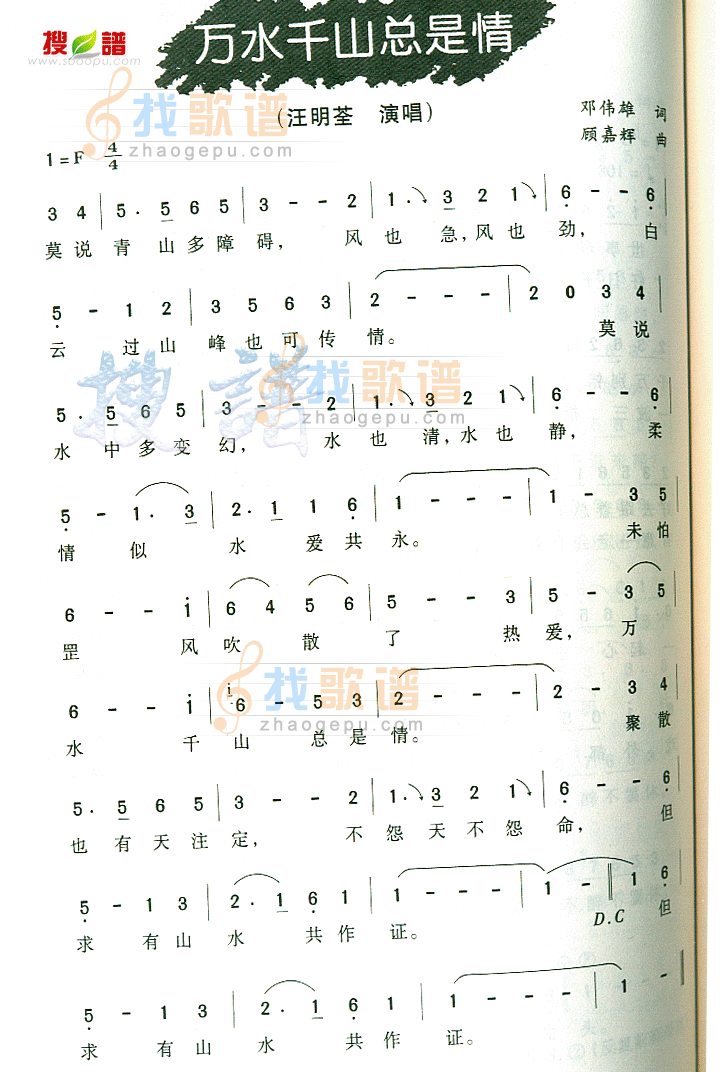 搜谱
www.sooopu.com
万水千山总是情
(汪明荃 演唱)
邓伟雄 词
顾嘉辉 曲
找歌谱
zhaogepu.com
1=F 4/4
3 4 | 5· 5 6 5 | 3 - - 2 | 1· 3 2 1 | 6 - - 6 |
莫说青山多障碍，风也急，风也劲，白
5 - 1 2 | 3 5 6 3 | 2 - - - | 2 0 3 4 |
云过山峰也可传情。莫说
搜谱
找歌谱
zhaogepu.com
5· 5 6 5 | 3 - - 2 | 1· 3 2 1 | 6 - - 6 |
水中多变幻，水也清，水也静，柔
5 - 1· 3 | 2· 1 1 6 | 1 - - - | 1 - 3 5 |
情似水爱共永。未怕
6 - - i | 6 4 5 6 | 5 - - 3 | 5 - 3 5 |
罡风吹散了热爱，万
找歌谱
zhaogepu.com
6 - - i | i 6 - 5 3 | 2 - - - | 2 - 3 4 |
水千山总是情。聚散
5· 5 6 5 | 3 - - 2 | 1· 3 2 1 | 6 - - 6 |
也有天注定，不怨天不怨命，但
5 - 1 3 | 2· 1 6 1 | 1 - - - | 1 - ‖ 1 6 |
求有山水共作证。D.C 但
5 - 1 3 | 2· 1 6 | 1 - - - | 1 - ‖
求有山水共作证。